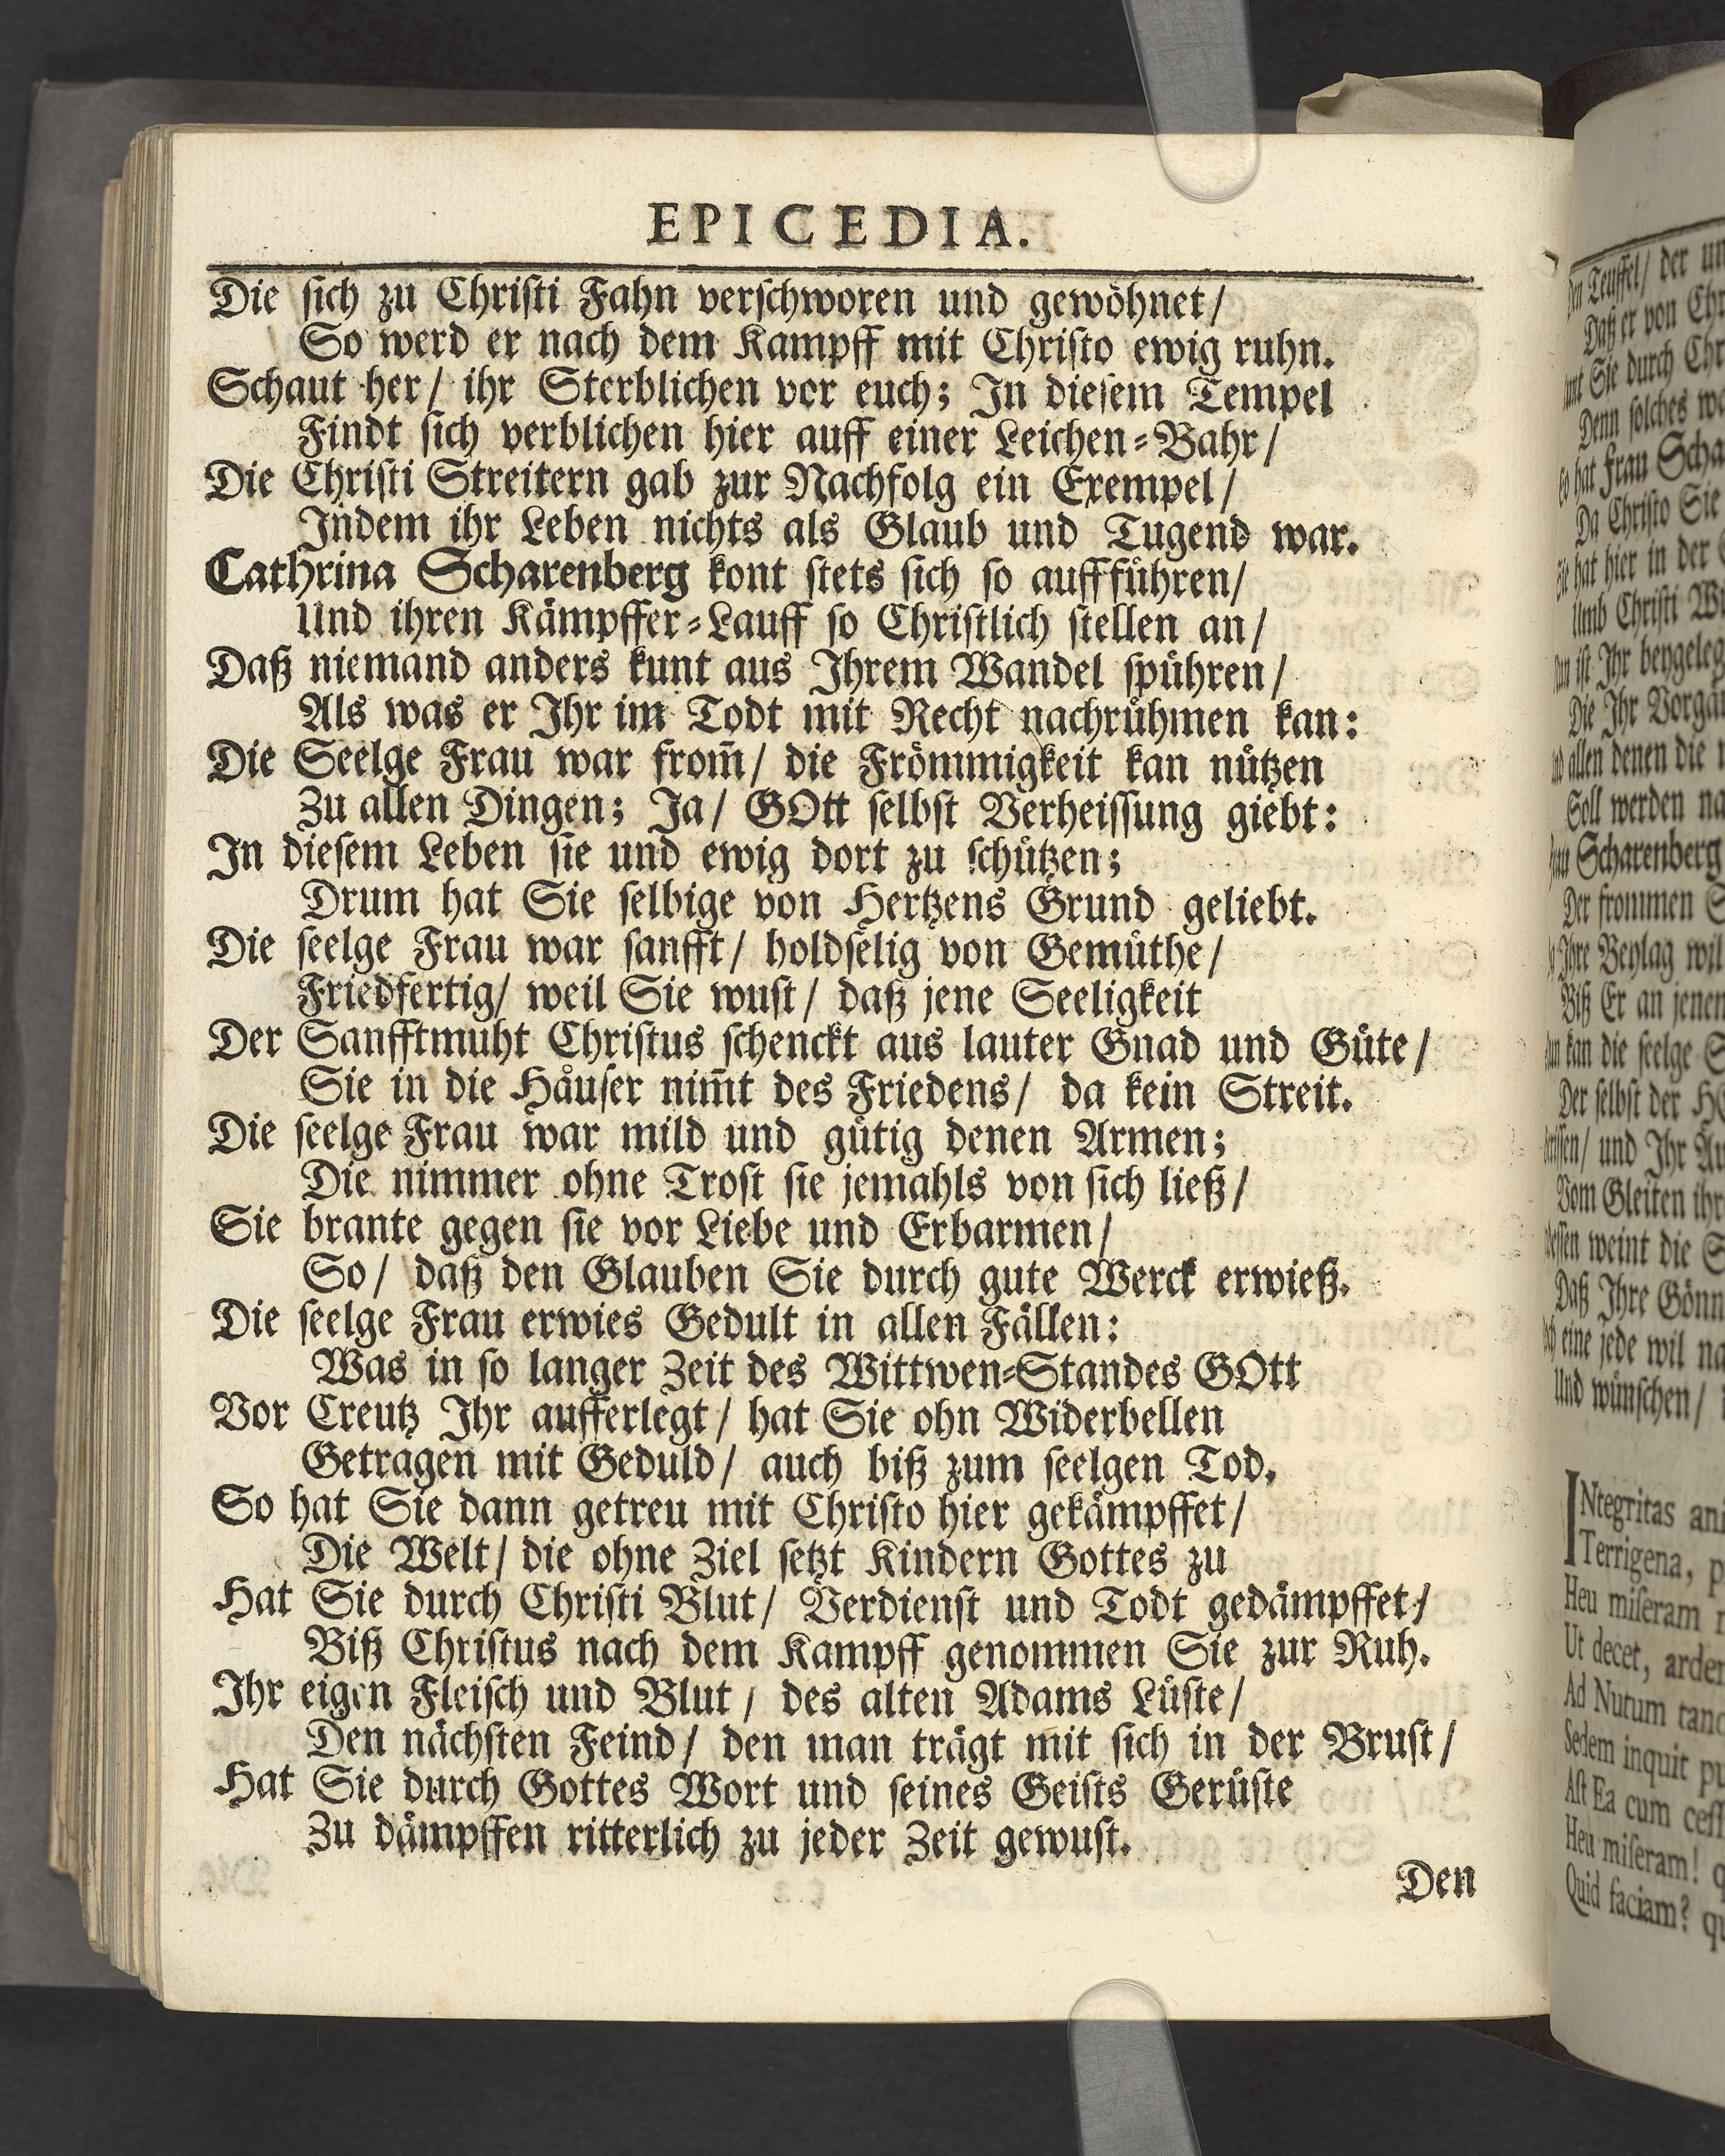 EPICEDIA.
Die ſich zu Chriſti Fahn verſchworen und gewöhnet/
So werd er nach dem Kampff mit Chriſto ewig ruhn.
Schaut her/ ihr Sterblichen vor euch; In dieſem Tempel
Findt ſich verblichen hier auff einer Leichen-Bahr/
Die Chriſti Streitern gab zur Nachfolg ein Exempel/
Indem ihr Leben nichts als Glaub und Tugend war.
Cathrina Scharenberg kont ſtets ſich ſo auffführen/
Und ihren Kämpffer-Lauff ſo Chriſtlich ſtellen an/
Daß niemand anders kunt aus Ihrem Wandel ſpühren/
Als was er Ihr im Todt mit Recht nachrühmen kan:
Die Seelge Frau war from̃/ die Frömmigkeit kan nützen
Zu allen Dingen; Ja/ GOtt ſelbſt Verheiſſung giebt:
In dieſem Leben ſie und ewig dort zu ſchützen;
Drum hat Sie ſelbige von Hertzens Grund geliebt.
Die ſeelge Frau war ſanfft/ holdſelig von Gemüthe/
Friedfertig/ weil Sie wuſt/ daß jene Seeligkeit
Der Sanfftmuht Chriſtus ſchenckt aus lauter Gnad und Güte/
Sie in die Häuſer nim̃t des Friedens/ da kein Streit.
Die ſeelge Frau war mild und gütig denen Armen;
Die nimmer ohne Troſt ſie jemahls von ſich ließ/
Sie brante gegen ſie vor Liebe und Erbarmen/
So/ daß den Glauben Sie durch gute Werck erwieß.
Die ſeelge Frau erwies Gedult in allen Fällen:
Was in ſo langer Zeit des Wittwen-Standes GOtt
Vor Creutz Ihr aufferlegt/ hat Sie ohn Widerbellen
Getragen mit Geduld/ auch biß zum ſeelgen Tod.
So hat Sie dann getreu mit Chriſto hier gekämpffet/
Die Welt/ die ohne Ziel ſetzt Kindern Gottes zu
Hat Sie durch Chriſti Blut/ Verdienſt und Todt gedämpffet/
Biß Chriſtus nach dem Kampff genommen Sie zur Ruh.
Ihr eigen Fleiſch und Blut/ des alten Adams Lüſte/
Den nächſten Feind/ den man trägt mit ſich in der Bruſt/
Hat Sie durch Gottes Wort und ſeines Geiſts Gerüſte
Zu dämpffen ritterlich zu jeder Zeit gewuſt.
Den
Teuffel/ der
Daß er von
Sie durch
Denn ſolches
hat Frau
Da Chriſto Sie
hat hier in der
Umb Chriſti
iſt Ihr
Die Ihr
allen denen die
Soll werden
Scharenberg
Der frommen
Ihre Beylag wil
Biß Er an
kan die ſeelge
Der ſelbſt der
und Ihr
Vom Gleiten
weint die
Daß Ihre
eine jede wil
Und wünſchen/
INtegritas
Terrigena,
Heu miſeram
Ut decet,
Ad Nutum
Sedem inquit
Aſt Ea cum
Heu miſeram!
Quid faciam?